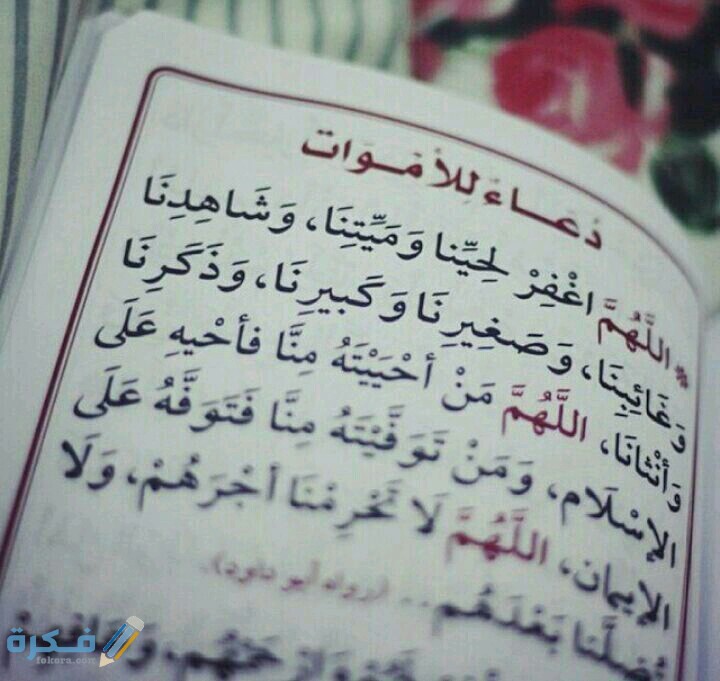 دُعَــاء لِلأمْـوَات
* اللَّهُمَّ اغْفِرْ لِحَيِّنا وَمَيِّتِنَا، وَشَاهِدِنَا
وَغَائِبِنَا، وَصَغِيرِنَا وَكَبيرِنَا، وَذَكَرِنَا
وَأُنْثانَا، اللَّهُمَّ مَنْ أحْيَيْتَهُ مِنَّا فأحْيِهِ عَلَى
الإسْلَام، وَمَنْ تَوَفَّيْتَهُ مِنَّا فَتَوَفَّهُ عَلَى
الإيمان، اللَّهُمَّ لَا تَحْرِمْنَا أجْرَهُمْ، وَلَا
تُضِلَّنَا بَعْدَهُم... (رواه أبو داود).
فكرة
fekera.com